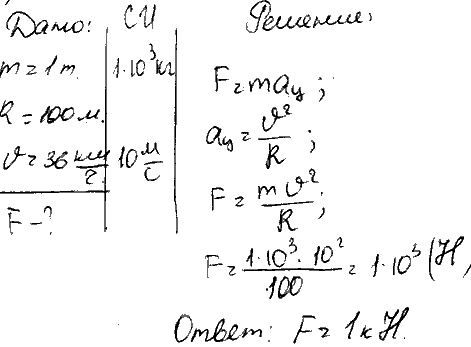 Дано: СИ Решение:
m = 1 т. 1·10³ кг
R = 100 м.
v = 36 км/г. 10 м/с
F - ?
F = maц;
aц = v²/R;
F = mv²/R;
F = 1·10³·10²/100 = 1·10³ (Н,
Ответ: F = 1 кН.